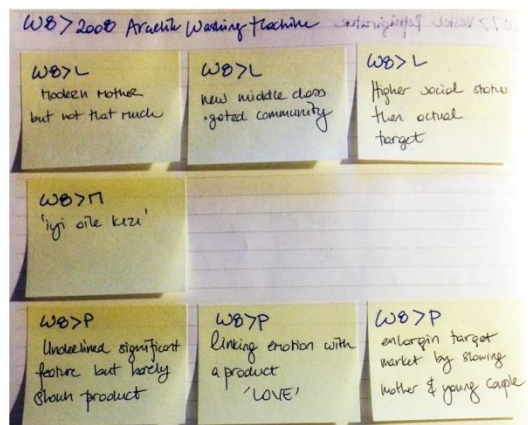 W8>2008 Arçelik Washing Machine
W8>L
Modern Mother
but not that much
W8>L
new middle class
•gated community
W8>L
Higher social status
then actual
target
W8>M
'iyi aile kızı'
W8>P
Underlined significant
feature but barely
shown product
W8>P
linking emotion with
a product
'LOVE'
W8>P
enlargin target
market by showing
mother & young couple